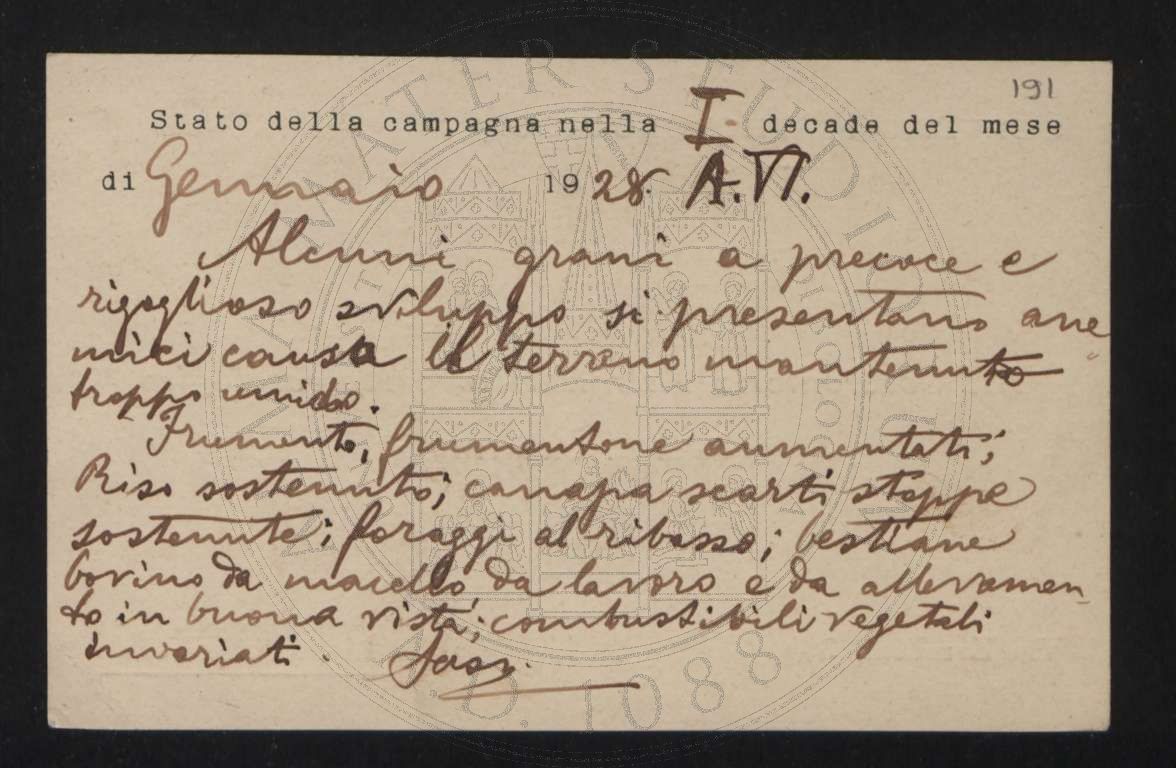 191
Stato della campagna nella I- decade del mese
di Gennaio 1928. A.VI.
Alcuni grani a precoce e
rigoglioso sviluppo si presentano ane
mici causa il terreno mantenuto
troppo umido.
Frumento, frumentone aumentati;
Riso sostenuto; canapa scarti stoppe
sostenute; foraggi al ribasso; bestiame
bovino da macello da lavoro e da allevamen_
to in buona vista; combustibili vegetali
invariati.
ALMA MATER STUDIORUM
A.D. 1088